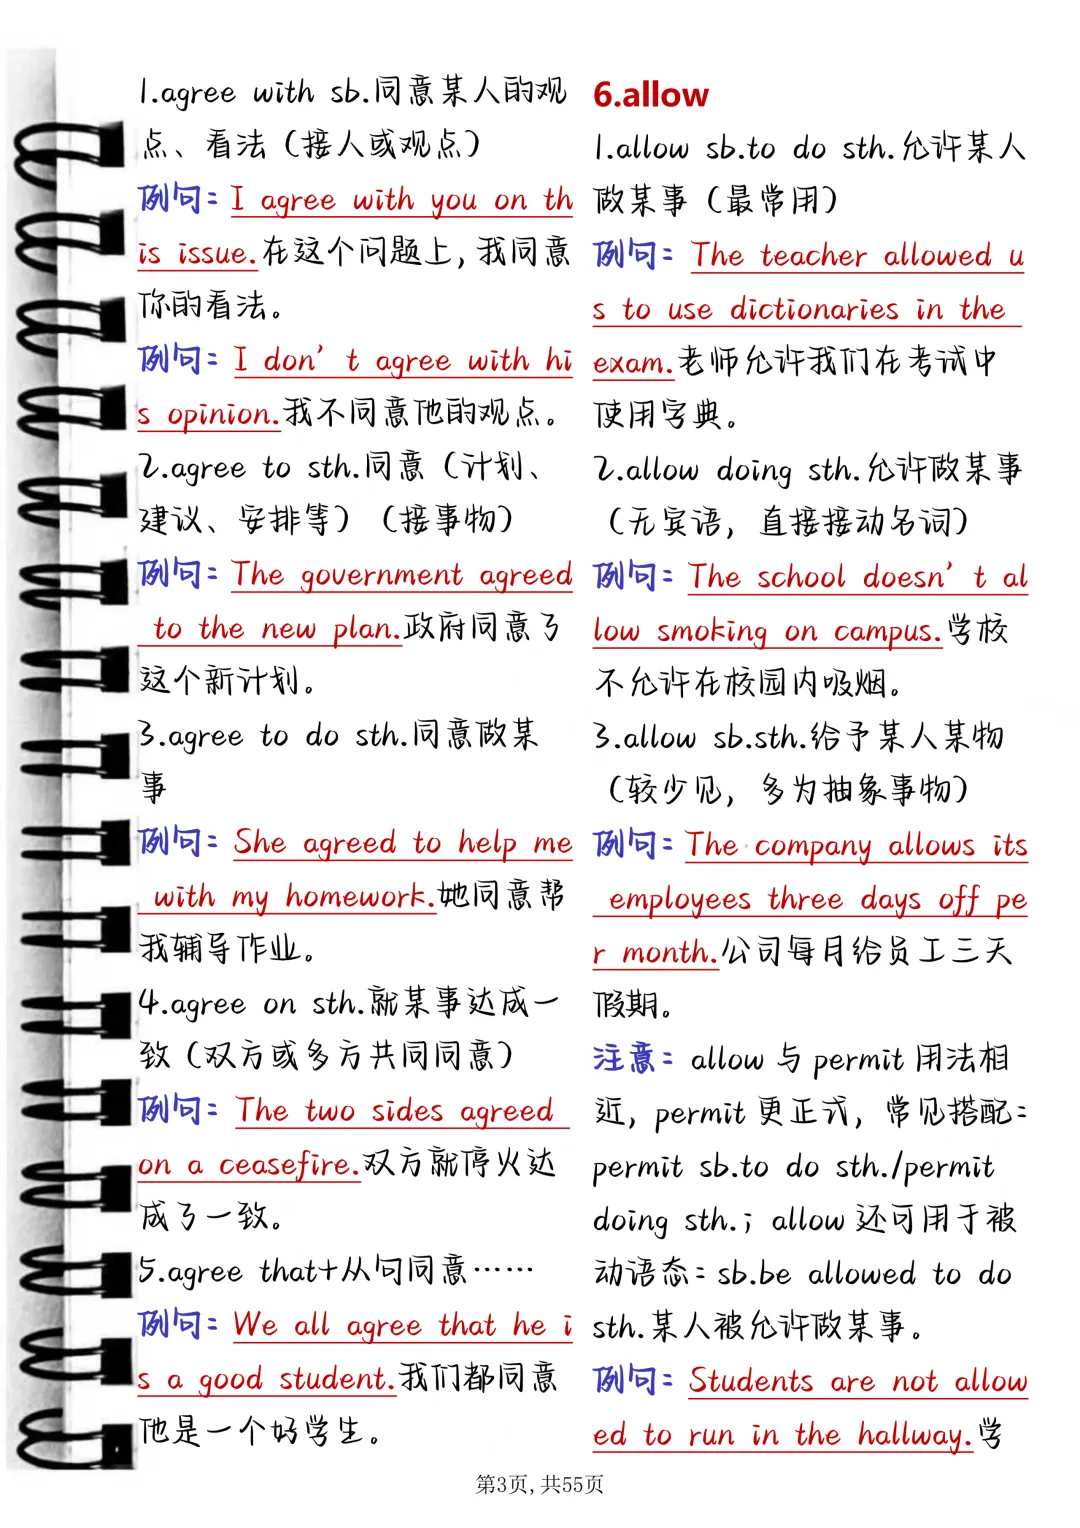 1.agree with sb.同意某人的观
点、看法（接人或观点）
例句：I agree with you on th
is issue.在这个问题上,我同意
你的看法。
例句：I don’t agree with hi
s opinion.我不同意他的观点。
2.agree to sth.同意（计划、
建议、安排等）（接事物）
例句：The government agreed
to the new plan.政府同意了
这个新计划。
3.agree to do sth.同意做某
事
例句：She agreed to help me
with my homework.她同意帮
我辅导作业。
4.agree on sth.就某事达成一
致（双方或多方共同同意）
例句：The two sides agreed
on a ceasefire.双方就停火达
成了一致。
5.agree that+从句同意……
例句：We all agree that he i
s a good student.我们都同意
他是一个好学生。
6.allow
1.allow sb.to do sth.允许某人
做某事（最常用）
例句：The teacher allowed u
s to use dictionaries in the
exam.老师允许我们在考试中
使用字典。
2.allow doing sth.允许做某事
（无宾语，直接接动名词）
例句：The school doesn’t al
low smoking on campus.学校
不允许在校园内吸烟。
3.allow sb.sth.给予某人某物
（较少见，多为抽象事物）
例句：The company allows its
employees three days off pe
r month.公司每月给员工三天
假期。
注意：allow 与 permit 用法相
近，permit 更正式，常见搭配：
permit sb.to do sth./permit
doing sth.；allow 还可用于被
动语态：sb.be allowed to do
sth.某人被允许做某事。
例句：Students are not allow
ed to run in the hallway.学
第3页,共55页